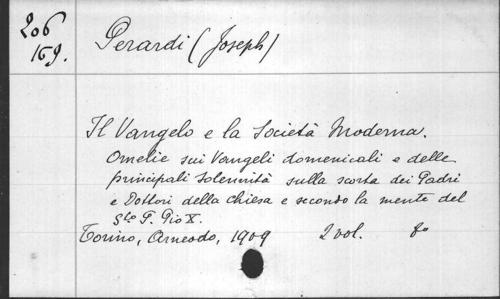 206
169.
Perardi (Joseph)
Il Vangelo e la Società Moderna.
Omelie sui Vangeli domenicali e delle
principali solennità sulla scorta dei Padri
e Dottori della Chiesa e secondo la mente del
Sto P. Pio X.
Torino, Arneodo, 1909 2 vol. 8o